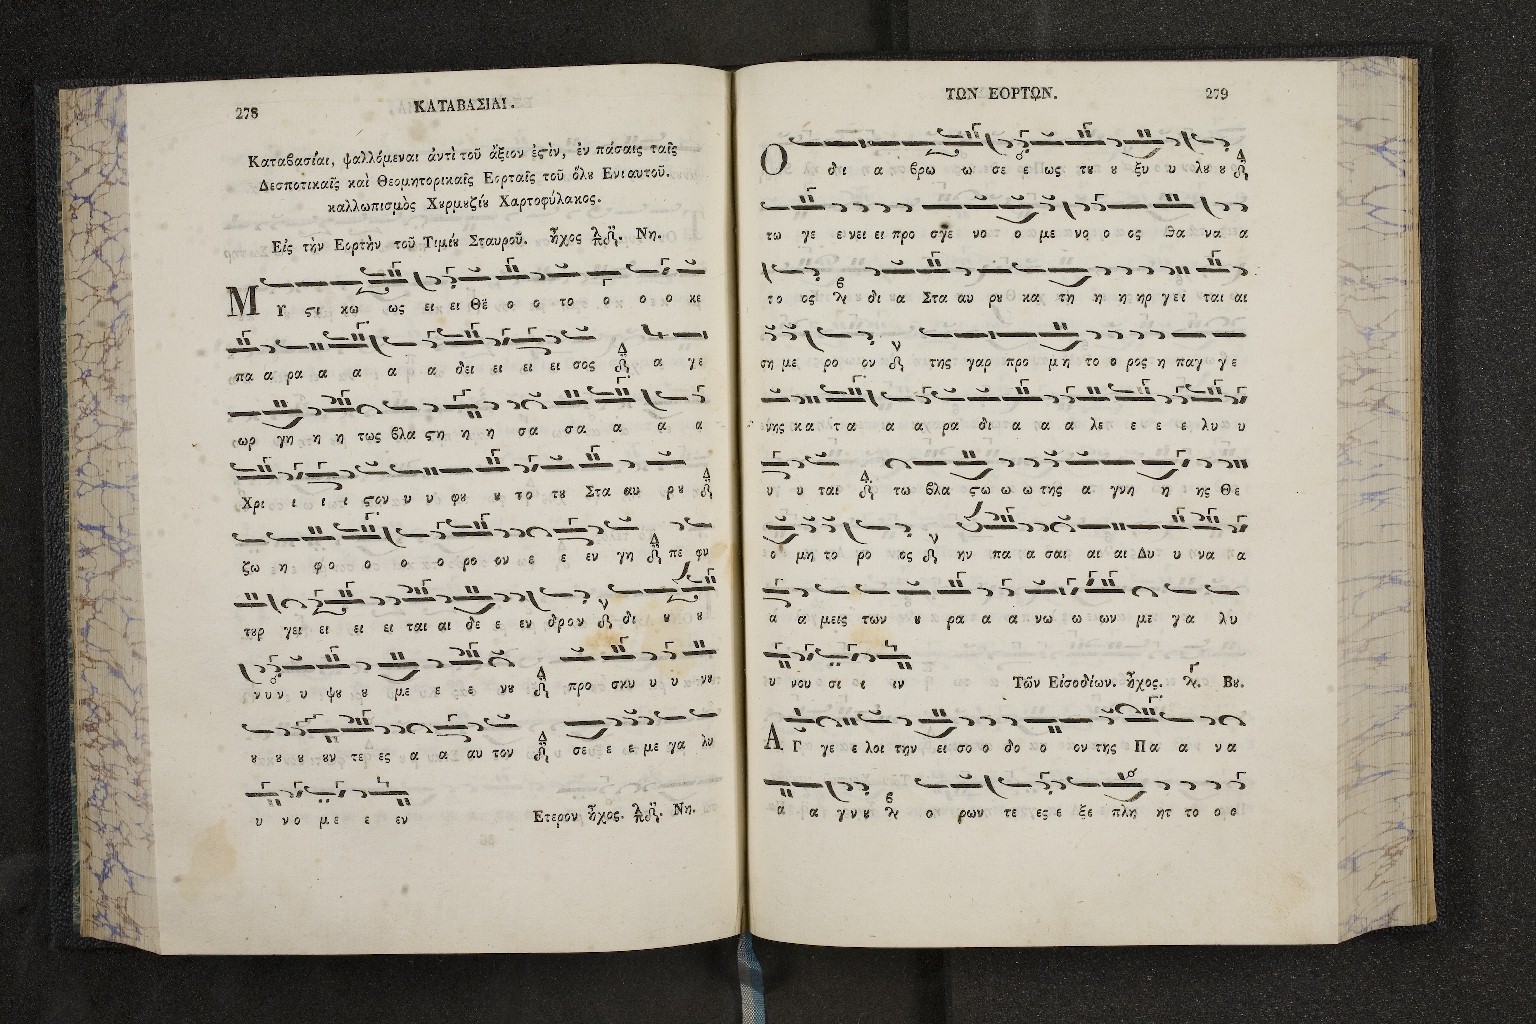 278
ΚΑΤΑΒΑΣΙΑΙ.
Καταβασίαι, ψαλλόμεναι ἀντὶ τοῦ ἄξιον ἐςὶν, ἐν πάσαις ταῖς
Δεσποτικαῖς καὶ Θεομητορικαῖς Εορταῖς τοῦ ὅλυ Ενιαυτοῦ.
καλλωπισμὸς Χυρμυζίυ Χαρτοφύλακος.
Εἰς τὴν Εορτὴν τοῦ Τιμίυ Σταυροῦ. ἦχος Νη.
Μ Υ ςι κω ως ει ει Θε ο ο το ο ο ο κε
πα α ρα α α α α δει ει ει ει σος α γε
ωρ γη η η τως βλα ςη η η σα σα α α α
Χρι ι ι ι ςον υ υ φυ υ το τυ Στα αυ ρυ
ζω η φο ο ο ο ρο ον ε ε εν γη πε φυ
τυρ γει ει ει ει ται αι δε ε εν δρον δι υ υ
νυν υ ψυ υ με ε ε ε νυ προ σκυ υ υ νυ
υ υ υ υν τε ες α α αυ τον σε ε ε με γα λυ
υ νο με ε εν
Ετερον ἦχος. Νη.
ΤΩΝ ΕΟΡΤΩΝ.
279
Ο δι α βρω ω σε ε ως τυ υ ξυ υ λυ υ
τω γε ε νει ει προ σγε νο ο με νο ο ος θα να α
το ος δι α Στα αυ ρυ κα τη η η ηρ γει ται αι
ση με ρο ον της γαρ προ μη το ο ρος η παγ γε
νης κα τα α α ρα δι α α α λε ε ε ε λυ υ
υ υ ται τω βλα ςω ω ω της α γνη η ης Θε
ο μη το ρο ος ην πα α σαι αι αι Δυ υ να α
α α μεις των υ ρα α α νω ω ων με γα λυ
υ νου σι ι ιν
Τῶν Εἰσοδίων. ἦχος. Βυ.
Α Γ γε ε λοι την ει σο ο δο ο ον της Πα α να
α α γνυ ο ρων τε ες ε ξε πλη ητ το ο ε